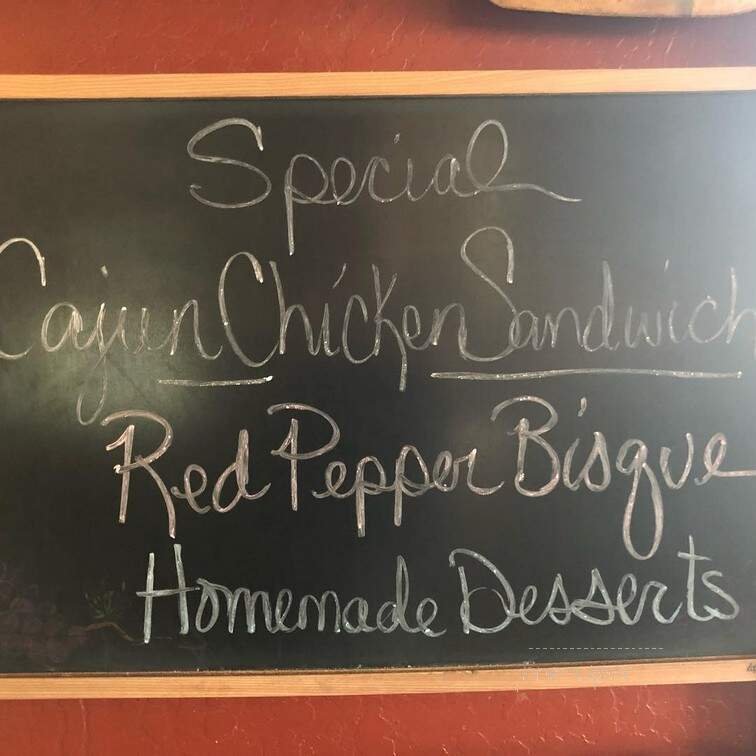 Special
Cajun Chicken Sandwich
Red Pepper Bisque
Homemade Desserts